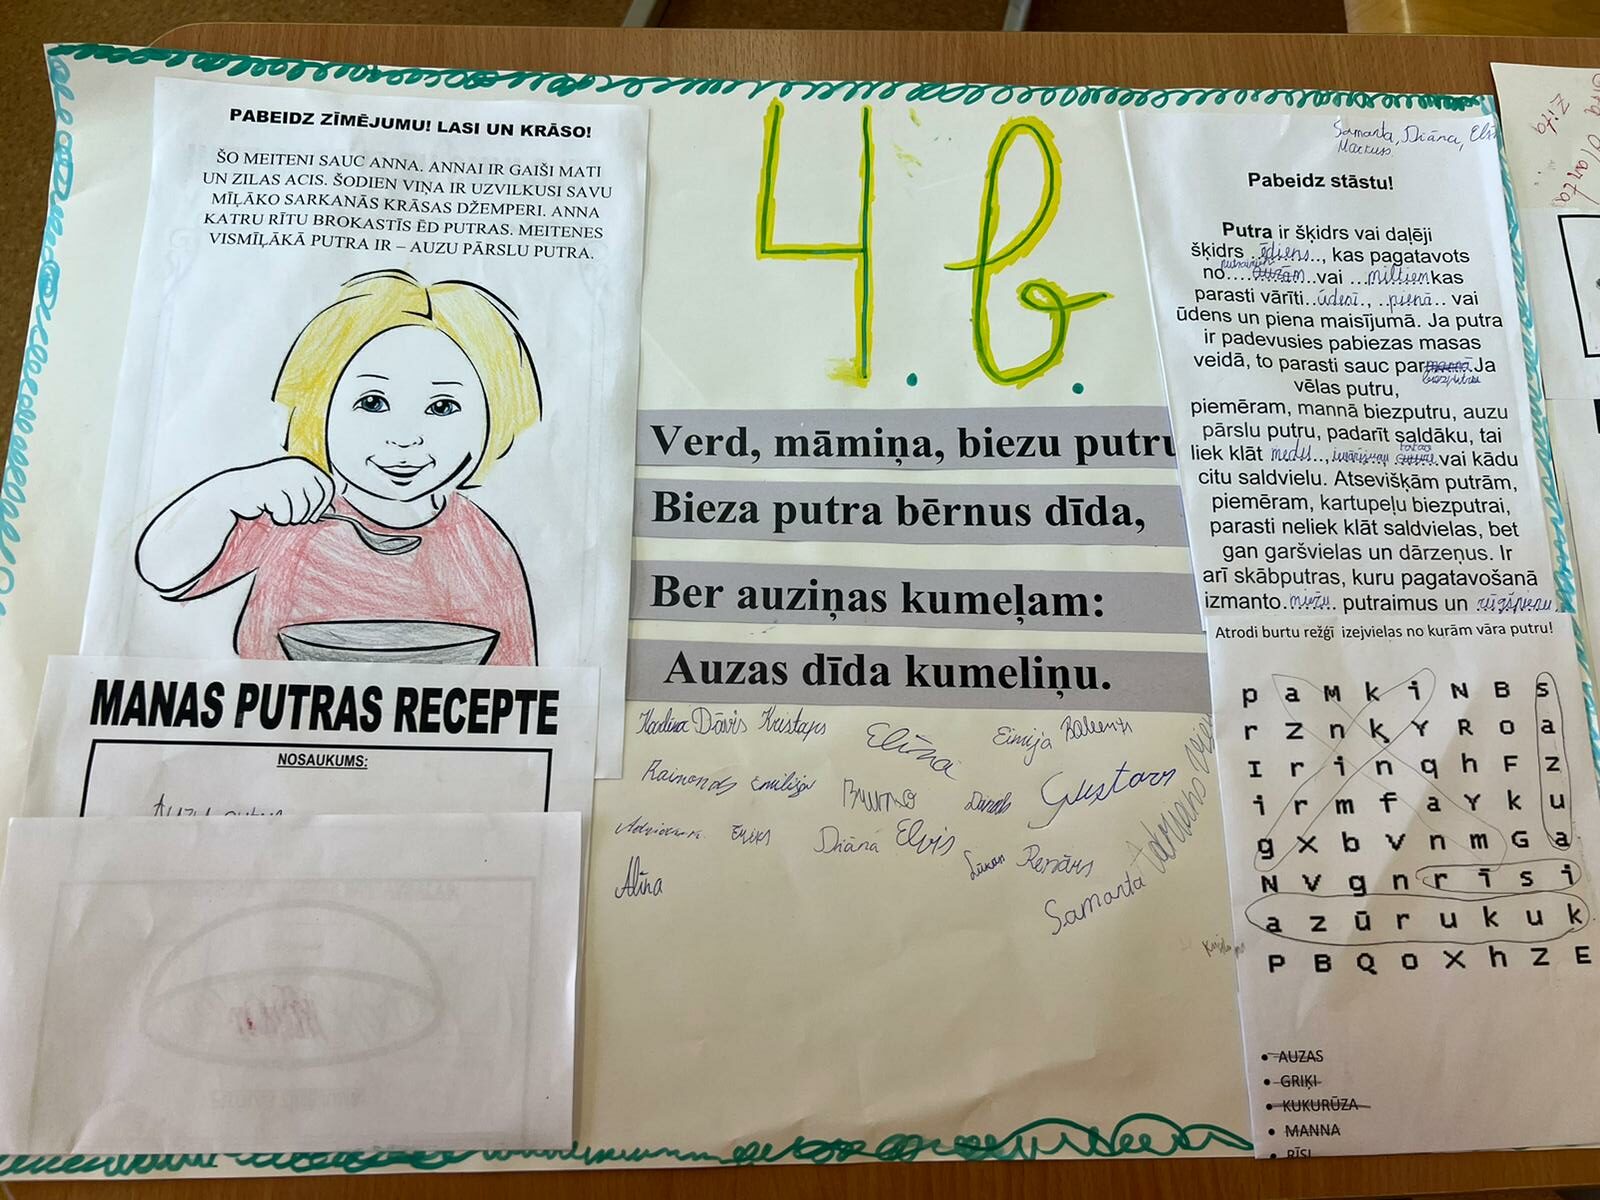 PABEIDZ ZĪMĒJUMU! LASI UN KRĀSO!
ŠO MEITENI SAUC ANNA. ANNAI IR GAIŠI MATI
UN ZILAS ACIS. ŠODIEN VIŅA IR UZVILKUSI SAVU
MĪĻĀKO SARKANĀS KRĀSAS DŽEMPERI. ANNA
KATRU RĪTU BROKASTĪS ĒD PUTRAS. MEITENES
VISMĪĻĀKĀ PUTRA IR – AUZU PĀRSLU PUTRA.
MANAS PUTRAS RECEPTE
NOSAUKUMS:
4. b.
Verd, māmiņa, biezu putru
Bieza putra bērnus dīda,
Ber auziņas kumeļam:
Auzas dīda kumeliņu.
Dāvis Kristaps Elīna Eimija
Raimonds Emilija Bruno Gustavs
Diāna Elvis Renārs
Alīna Samanta
Samanta, Diāna,
Markuss
Pabeidz stāstu!
Putra ir šķidrs vai daļēji
šķidrs ..ēdiens.., kas pagatavots
no.... vai ...miltiem kas
parasti vārīti..ūdenī.., ..pienā.. vai
ūdens un piena maisījumā. Ja putra
ir padevusies pabiezas masas
veidā, to parasti sauc par biezputra Ja
vēlas putru,
piemēram, mannā biezputru, auzu
pārslu putru, padarīt saldāku, tai
liek klāt medu.., vai kādu
citu saldvielu. Atsevišķām putrām,
piemēram, kartupeļu biezputrai,
parasti neliek klāt saldvielas, bet
gan garšvielas un dārzeņus. Ir
arī skābputras, kuru pagatavošanā
izmanto.miežu. putraimus un rūgšpienu.
Atrodi burtu režģī izejvielas no kurām vāra putru!
p a M k i N B s
r z n ķ Y R O a
I r i n q h F z
i r m f a Y k u
g X b v n m G a
N v g n r ī s i
a z ū r u k u k
P B Q o X h Z E
• AUZAS
• GRIĶI
• KUKURŪZA
• MANNA
• RĪSI